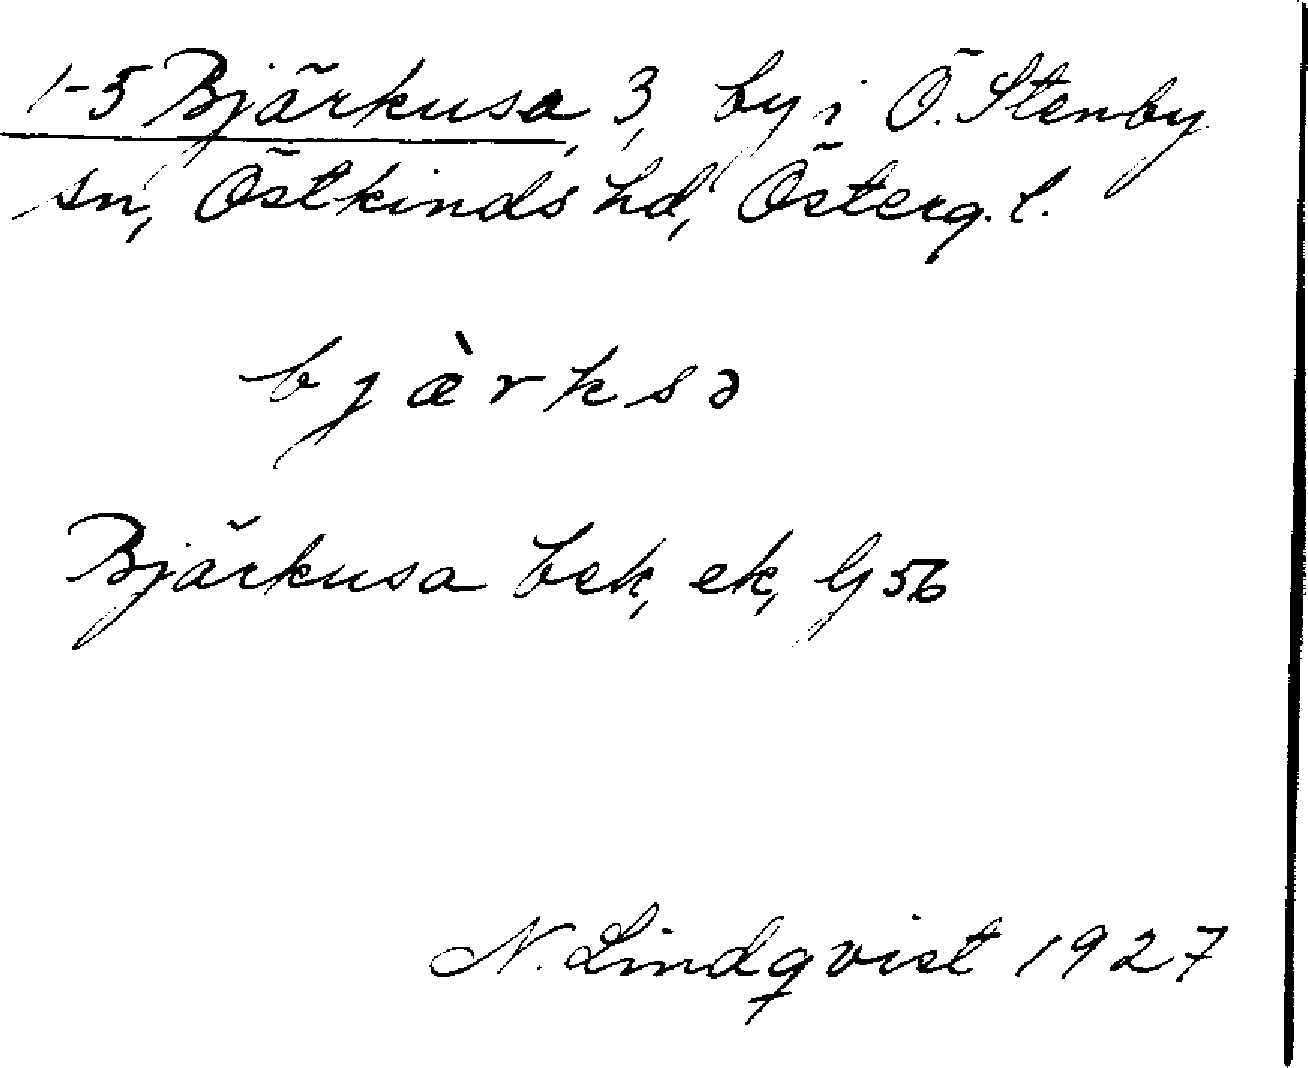 1-5 Bjärkusa, 3, by i Ö. Stenby
sn, Östkinds hd, Österg. l.
bjæ̀rksə
Bjärkusa bek, ek, G 56
N. Lindqvist 1927